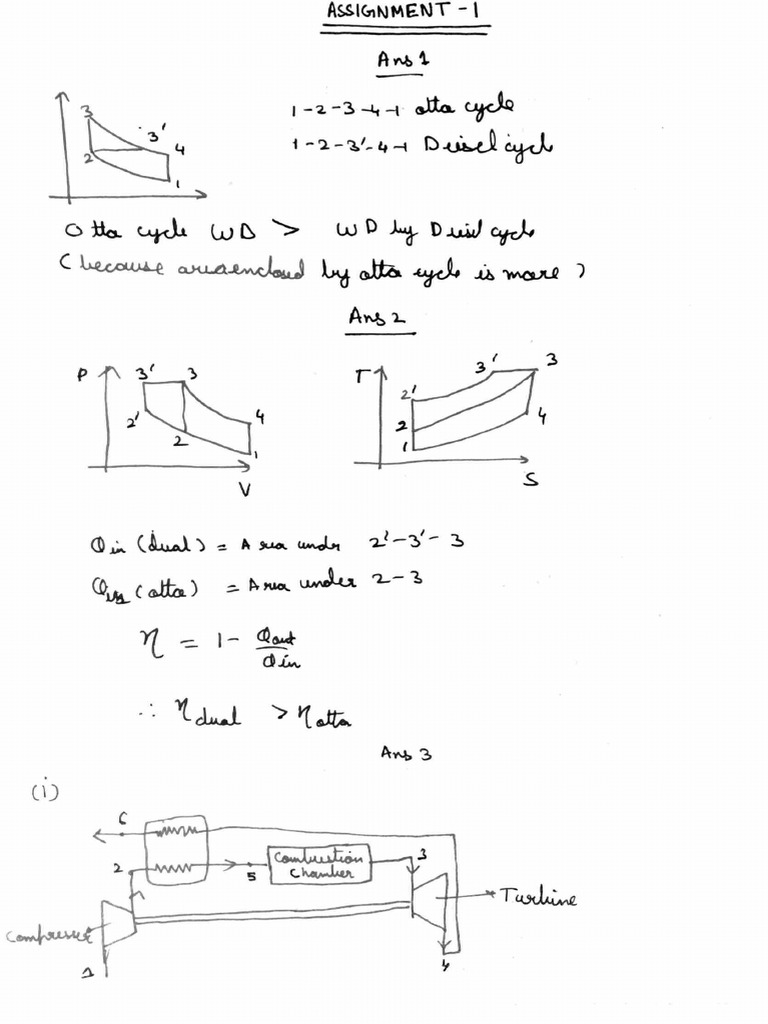 ASSIGNMENT - 1
Ans 1
3
3'
2
4
1
1-2-3-4-1 otta cycle
1-2-3'-4-1 Diesel cycle
Otta cycle WD > WD by Diesel cycle
(because area enclosed by otta cycle is more)
Ans 2
P
3'
3
2'
2
4
1
V
T
3'
3
2'
2
1
4
S
Qin (dual) = Area under 2'-3'-3
Qin (otta) = Area under 2-3
η = 1 - Qout/Qin
∴ ηdual > ηotta
Ans 3
(i)
6
2
5
Combustion
Chamber
3
Turbine
Compressor
1
4